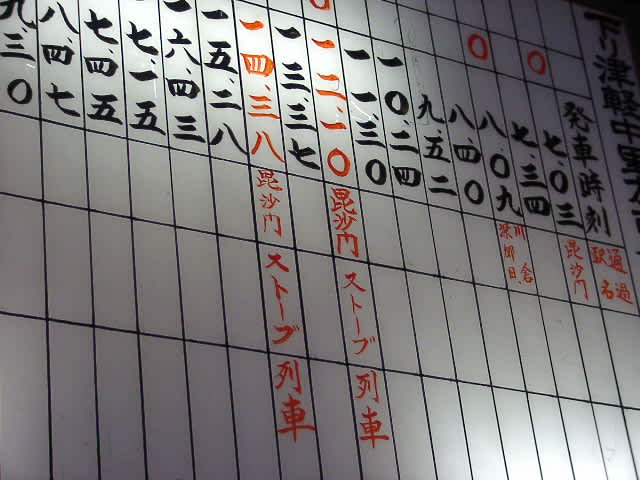 下り津軽中里方
発車時刻 通過駅名
〇 七.〇三 毘沙門
七.三四
〇 八.〇九 川倉 深郷田
八.四〇
九.五二
一〇.二四
一一.三〇
〇 一二.一〇 毘沙門 ストーブ列車
一三.三七
一四.三八 毘沙門 ストーブ列車
一五.二八
一六.四三
一七.一五
七.四五
八.四七
九.三〇